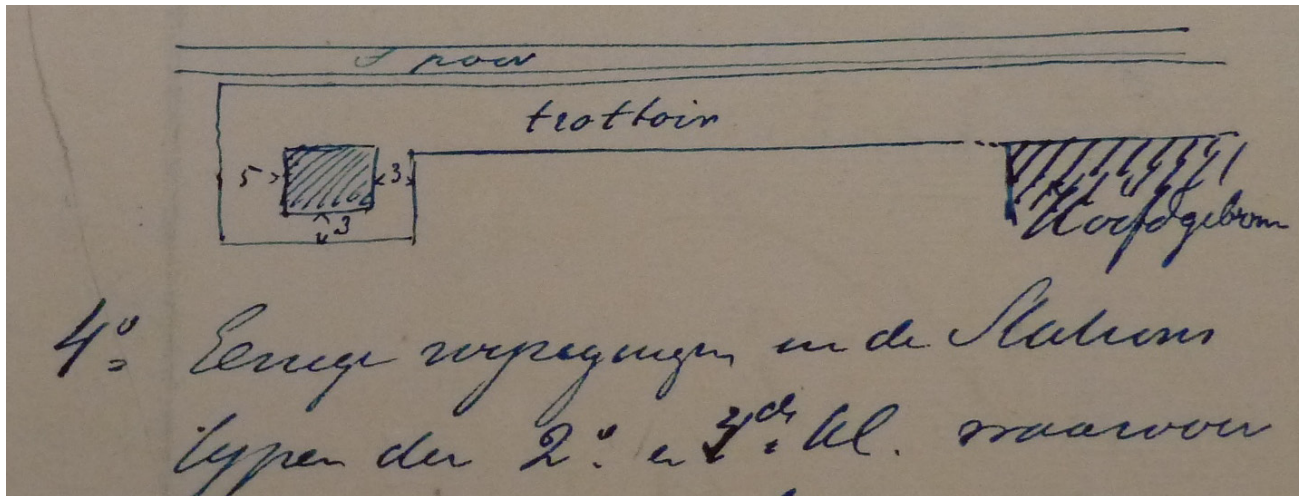 Spoor
trottoir
5 3
3
Hoofdgebouw
4º Eenige wijzigingen in de Stations
typen der 2º en 4de kl. waarvoor